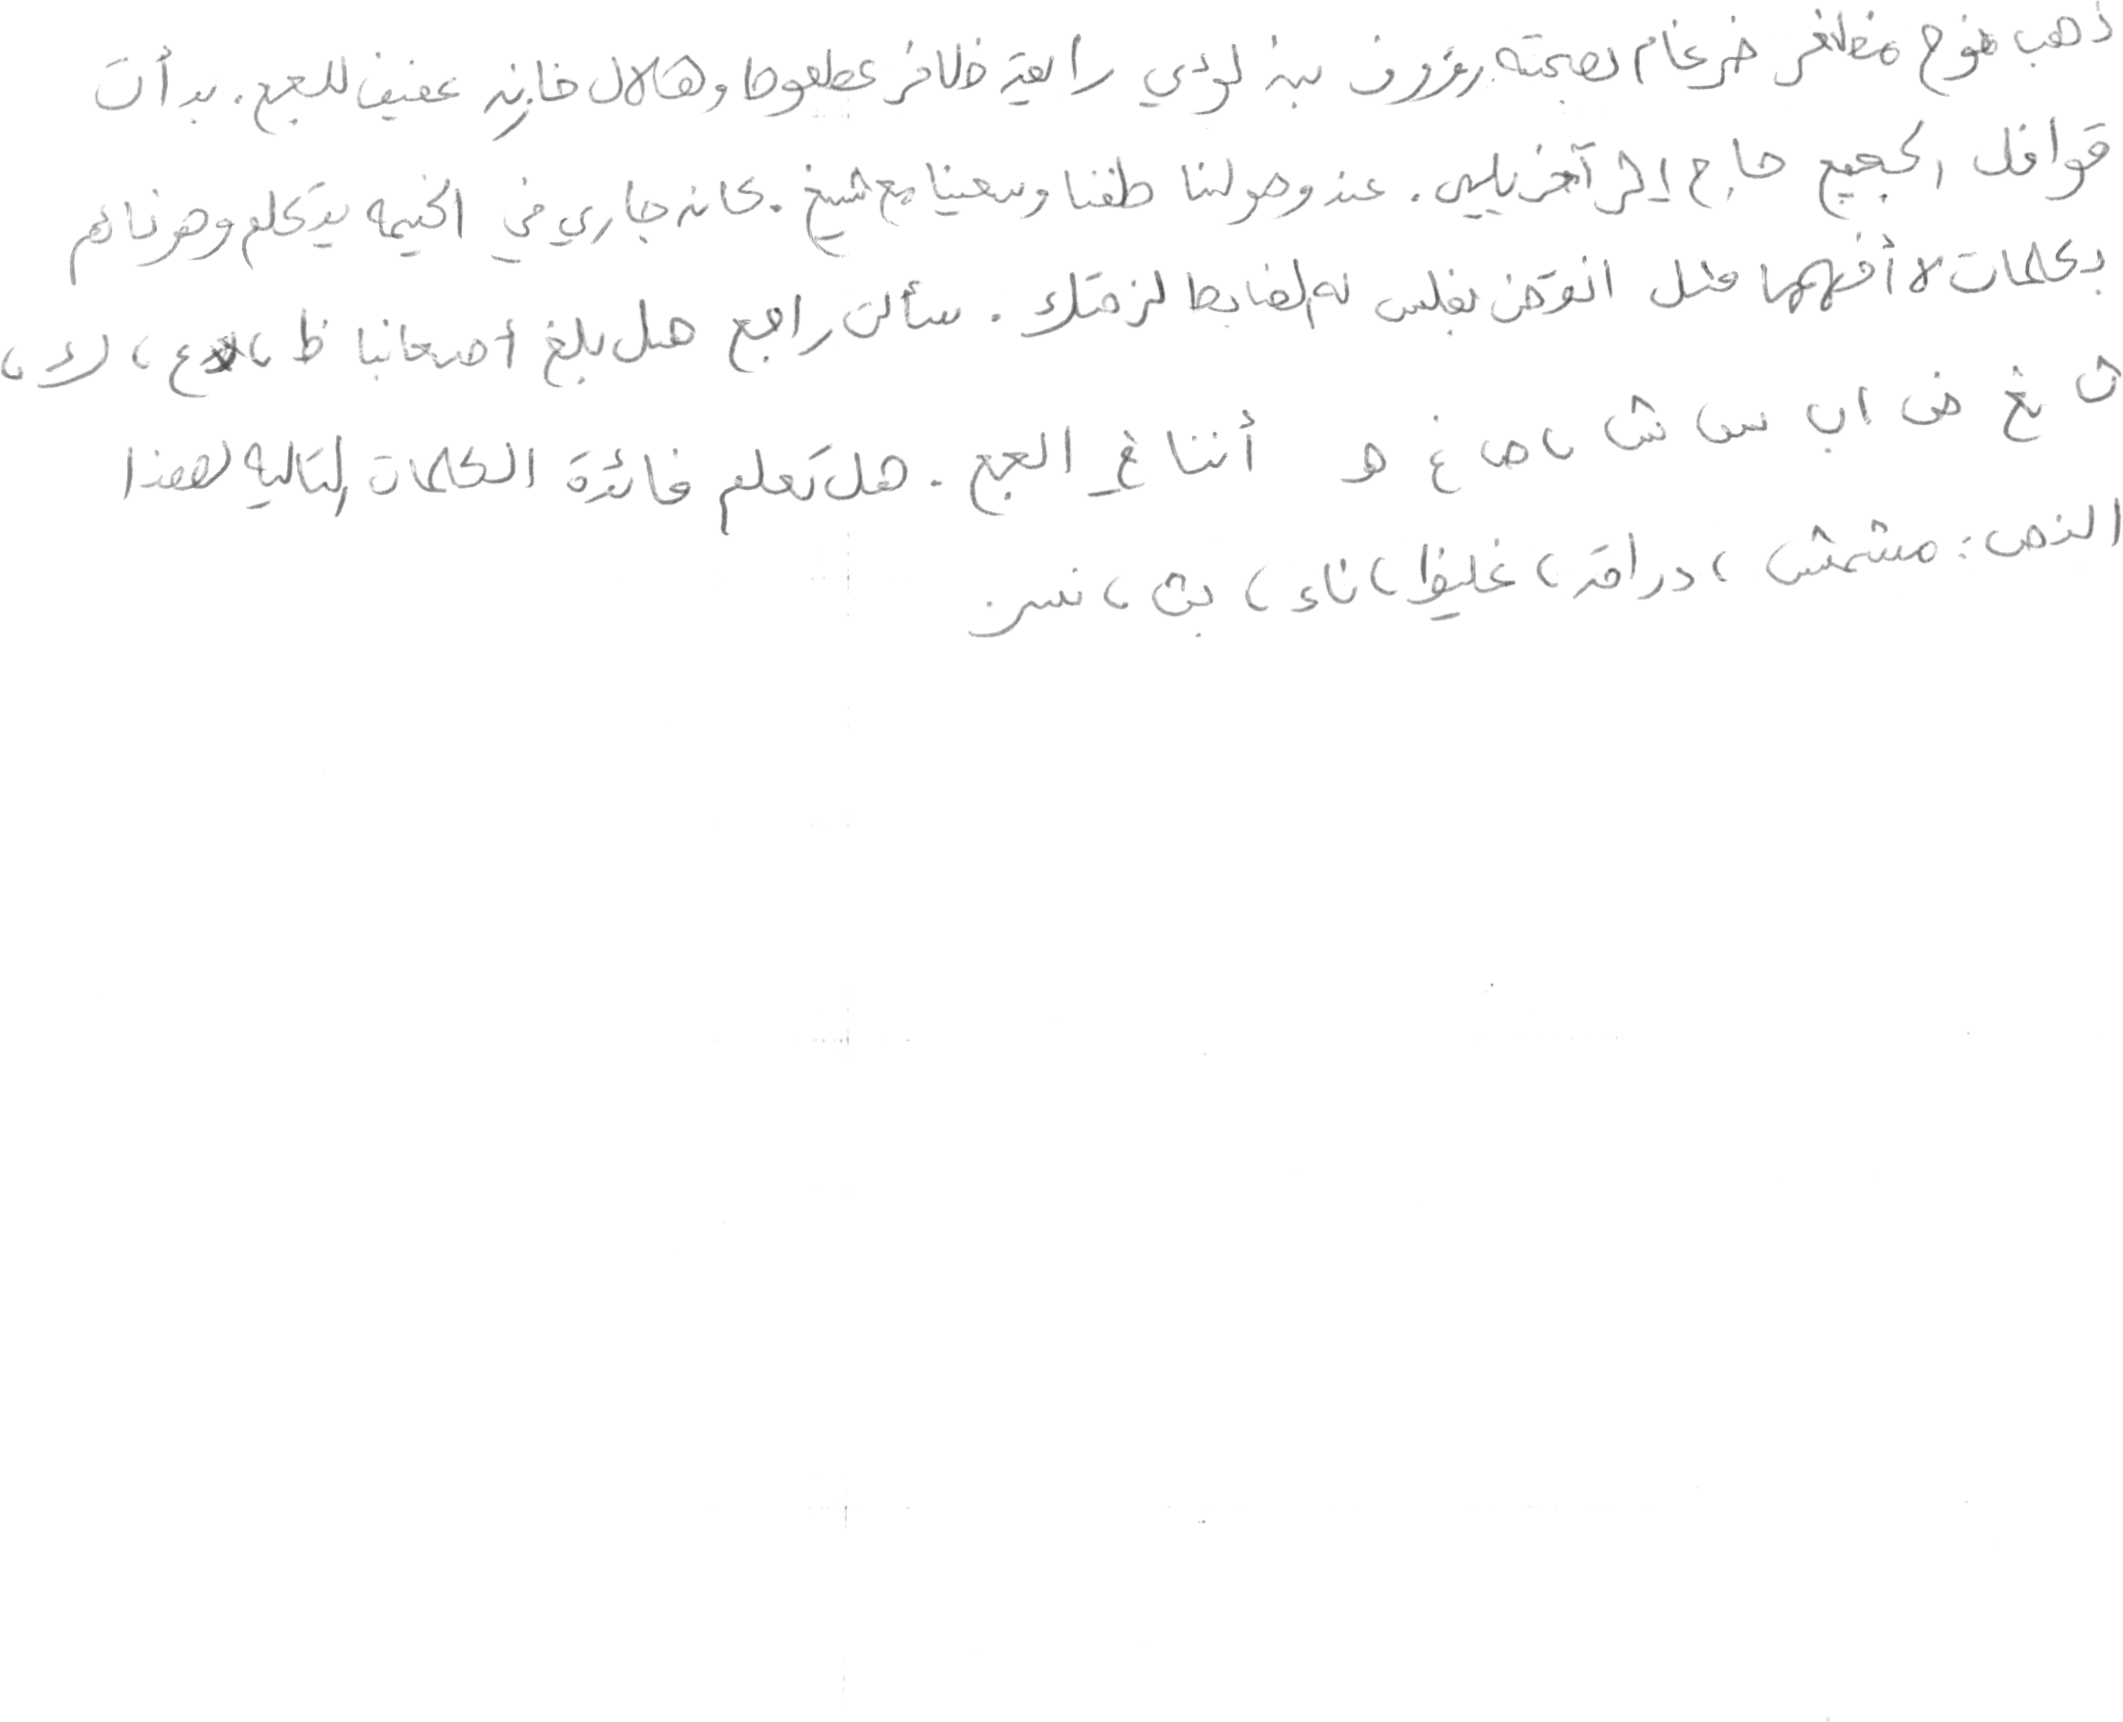 ذهب نوح مظفر ضرغام بصحبته رؤوف بن لؤي رافع ظافر عطعوط وهلال خازن عفيف للحج. بدأت
قوافل الحجيج حاج إثر آخر يلبي. عند وصولنا طفنا وسعينا مع شيخ. كان جاري في الخيمه يتكلم وهو نائم
بكلمات لا أفهمها مثل انقرض بغلس له الضابط لزمتك. سألت راجح هل بلغ أصحابنا ظ ، ع ، ر د ،
ث بغ ض اب س ش ، ص غ هـ أثناء الحج. هل تعلم فائدة الكلمات التاليه لهذا
النص: مشمش ، دراق ، غليظ ، ناء ، بث ، نسر.